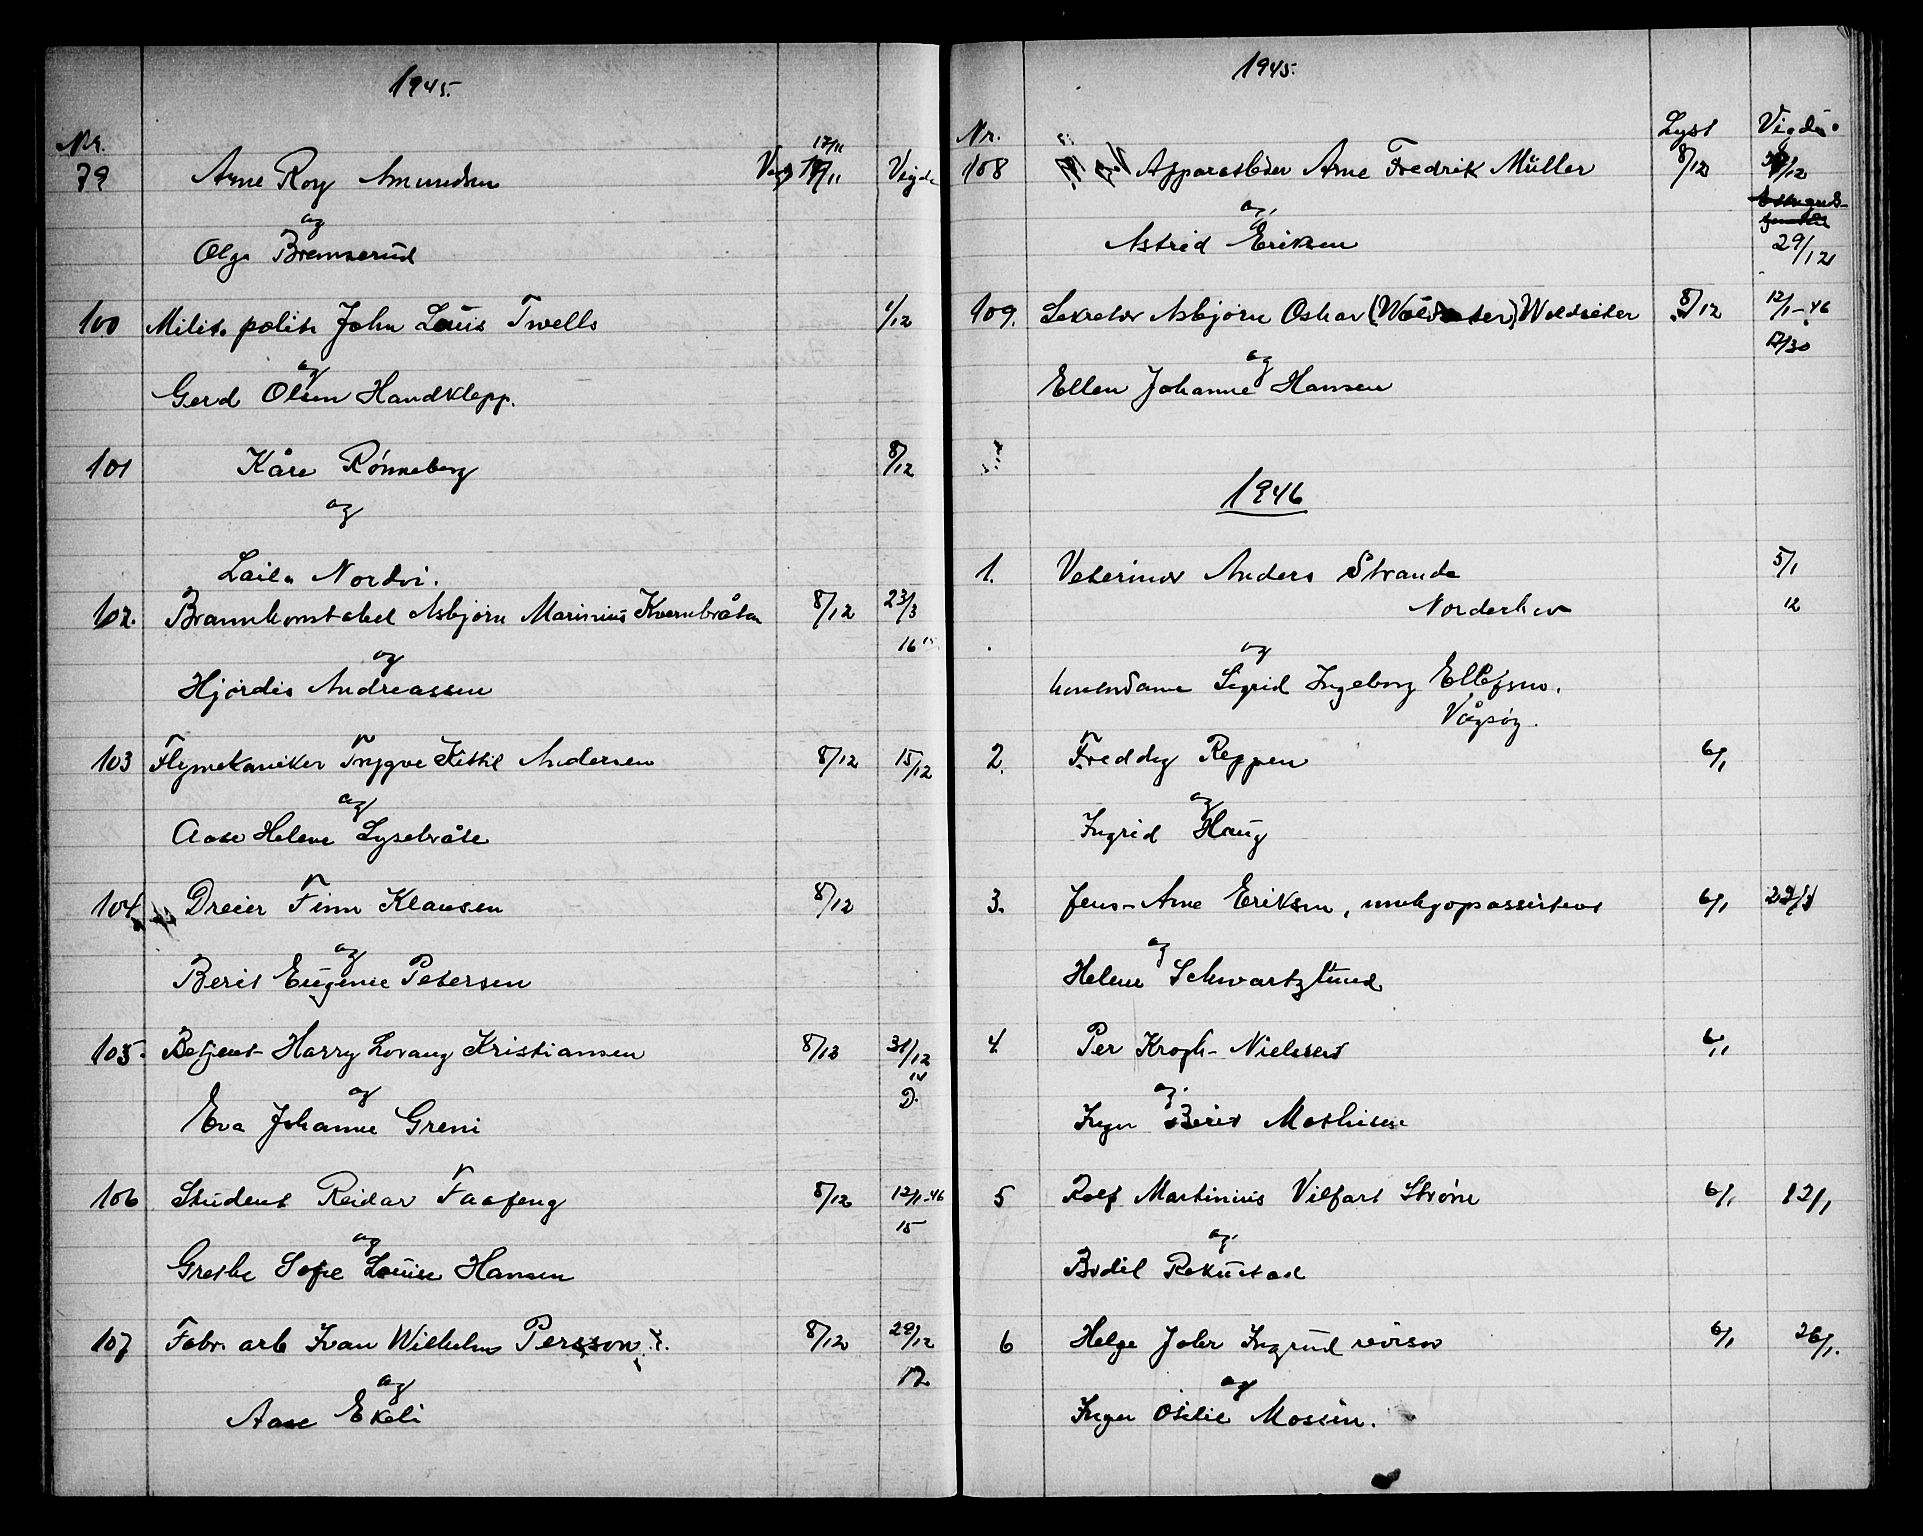 1945.
Nr.
79 Arne Roy Amundsen 17/11 Vigde
og
Olga Bremserud
100 Milit. politi John Louis Twells 1/12
og
Gerd Olsen Handklepp.
101 Kåre Rønneberg 8/12
og
Laila Nordvi.
102. Brannkonstabel Asbjørn Marinius Kvernbråten 8/12 23/3
16
og
Hjördis Andreassen
103 Flymekaniker Trygve Kittil Andersen 8/12 15/12
og
Aase Helene Lysebråte
104 Dreier Finn Klausen 8/12
og
Berit Eugenie Petersen
105. Betjent Harry Lovang Kristiansen 8/12 31/12
og
Eva Johanne Greni
106 Student Reidar Faafeng 8/12 12/1-46
15
og
Grethe Sofie Louise Hansen
107 Fabr. arb Ivan Wilhelm Persson 8/12 29/12
og
Aase Ekeli
1945.
Nr. Lyst Vigde
108 Arne Fredrik Müller 8/12
og
Astrid Eriksen 29/12
109. Sekretær Asbjørn Oskar Woldseter 8/12 12/1-46
og
Ellen Johanne Hansen
1946
1. Veterinær Anders Strande 5/1
Norderhov 12
og
Sigrid Ingeborg Ellefsen.
Vågsøy.
2. Freddy Reppen 6/1
og
Ingrid Haug
3. Jens-Arne Eriksen, 6/1
og
Helene Schwartzlund
4. Per Krogh-Nielsen 6/1
og
Inger Berit Mathisen
5 Rolf Martinius Vilfart Strøm 6/1 12/1
og
Bodil Rekustad
6 Helge Johr Ingrud revisor 6/1 26/1.
og
Inger Otilie Mossin.